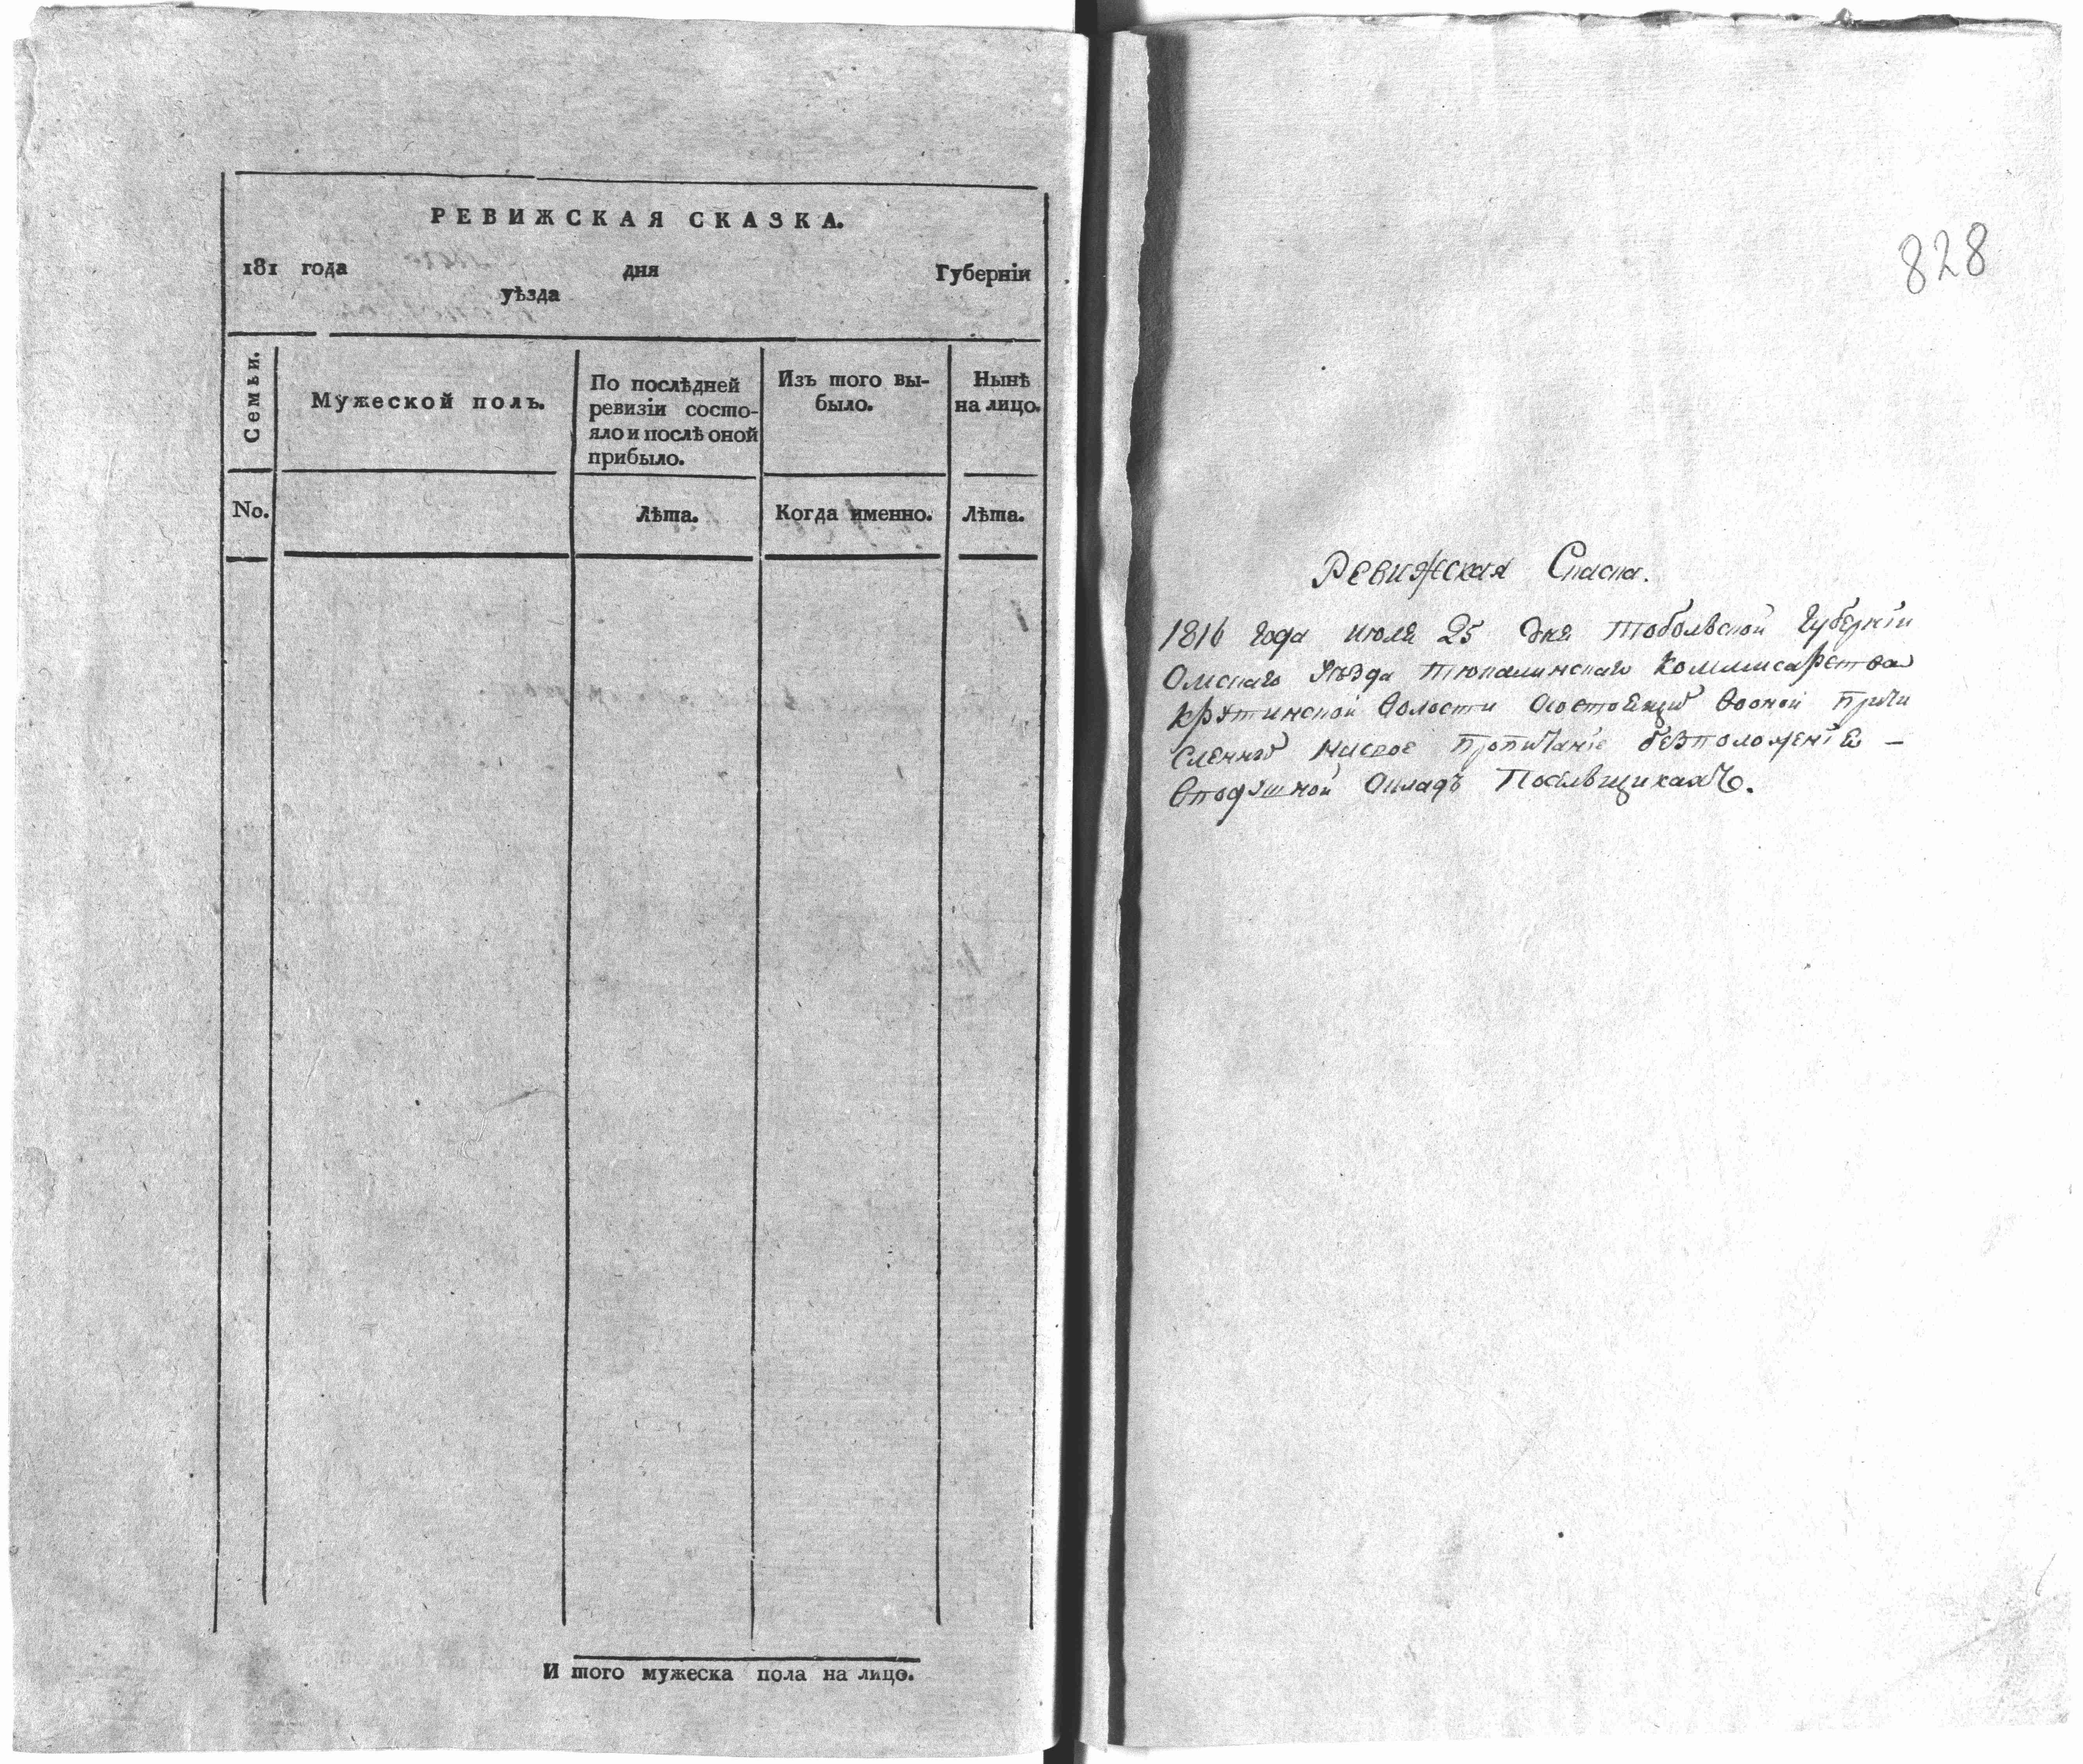 РЕВИЖСКАЯ СКАЗКА.
181 года дня Губерніи
уѣзда
Семьи.
Мужеской полъ.
По послѣдней
ревизіи состо-
яло и послѣ оной
прибыло.
Изъ того вы-
было.
Нынѣ
на лицо.
No.
Лѣта.
Когда именно.
Лѣта.
И того мужеска пола на лицо.
828
Ревижская Скаска.
1816 года июля 25 дня Тобольской Губерніи
Омскаго Уѣзда Тюкалинскаго Коммисарства
Крутинской волости Осостоящих вооной Причи
сленных насвое Пропитаніе безположенія –
вподушной Окладъ Посѣльщикахъ.